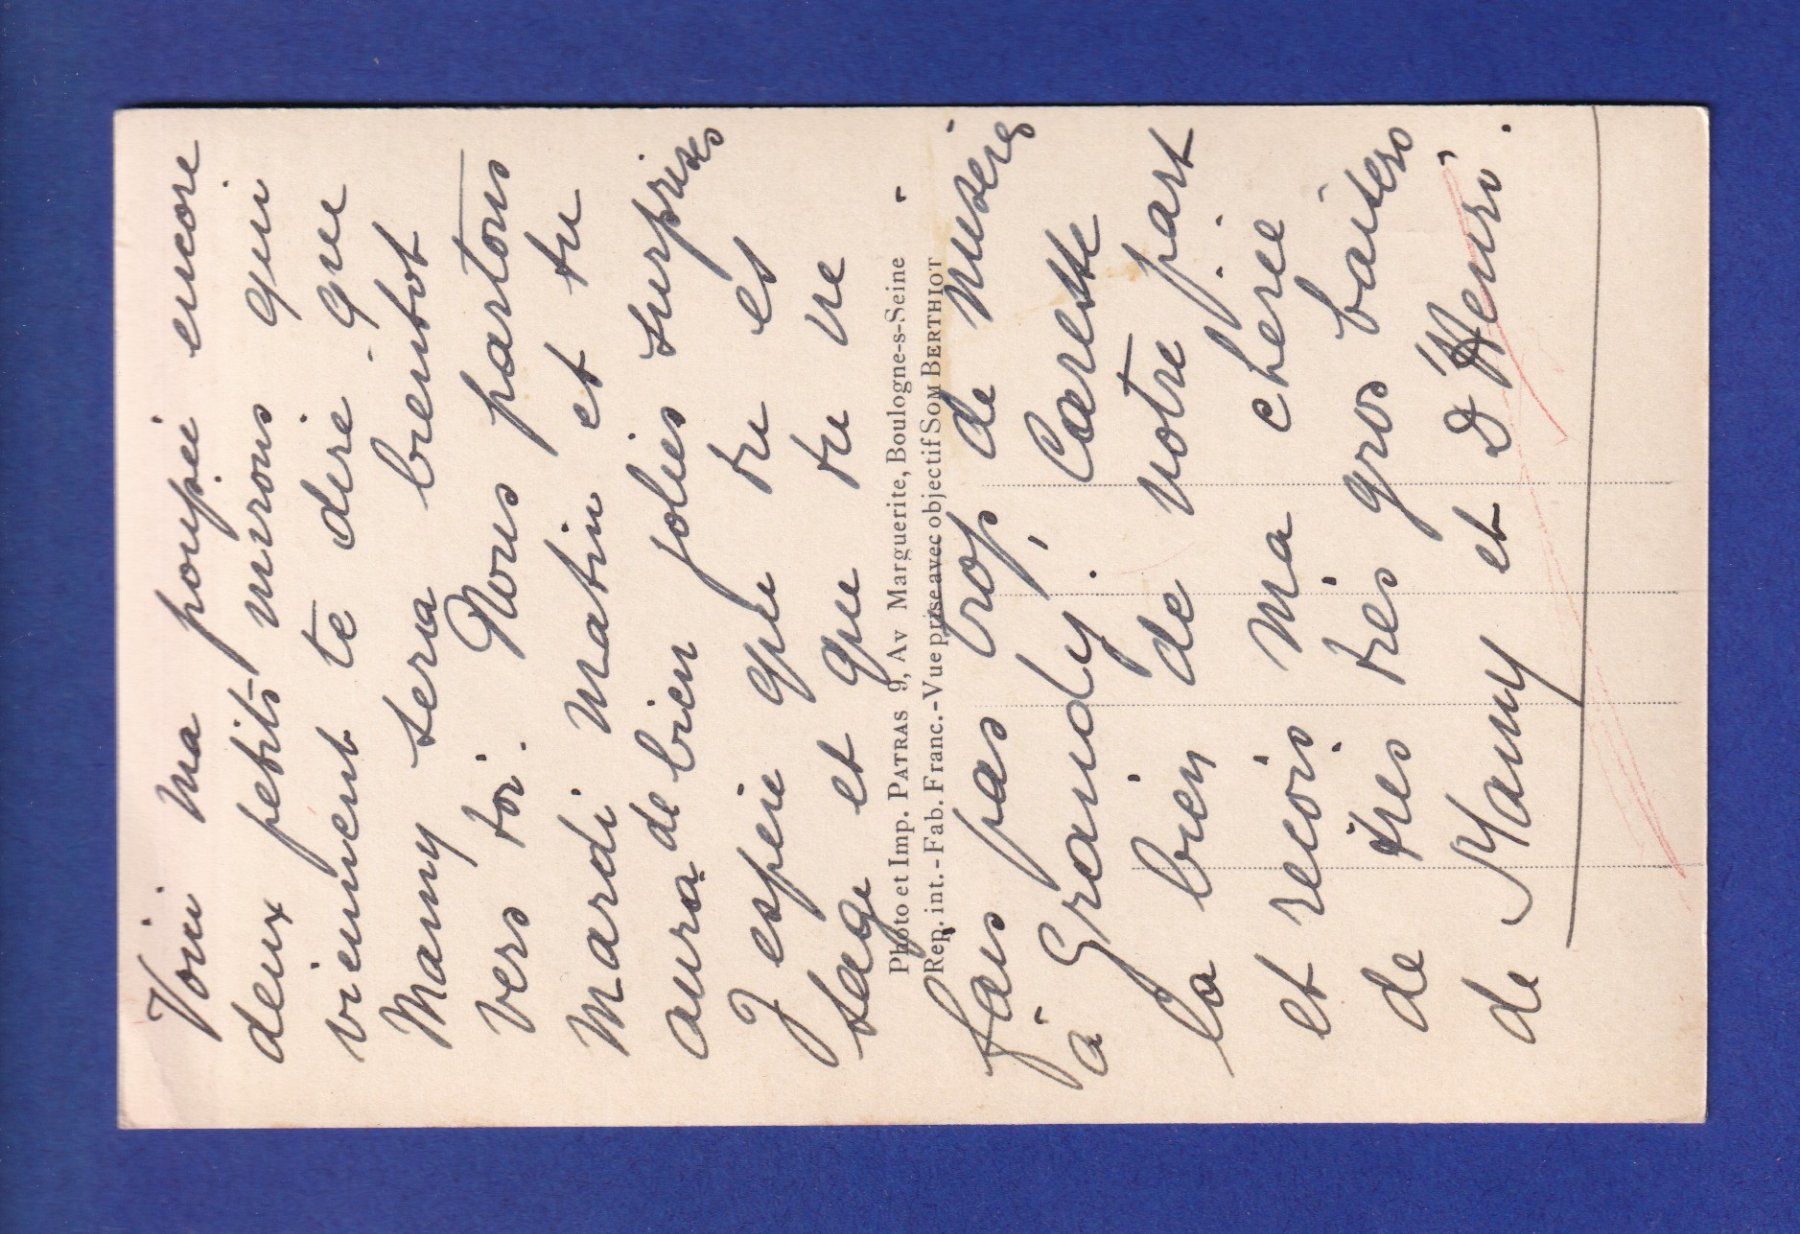 Voici ma poupée encore
deux petits minous qui
viennent te dire que
Mamy sera bientot
vers toi. Nous partons
Mardi matin et tu
aura de bien jolies surprises
J espere que tu es
sage et que tu ne
fais pas trop de miseres
à Grandy. Caresse
la bien de notre part
et recois ma cherie
de tres tres gros baisers
de Mamy et D'Henri.
Photo et Imp. PATRAS 9, Av Marguerite, Boulogne-s-Seine
Rep. int. - Fab. Franc. - Vue prise avec objectif SOM BERTHIOT